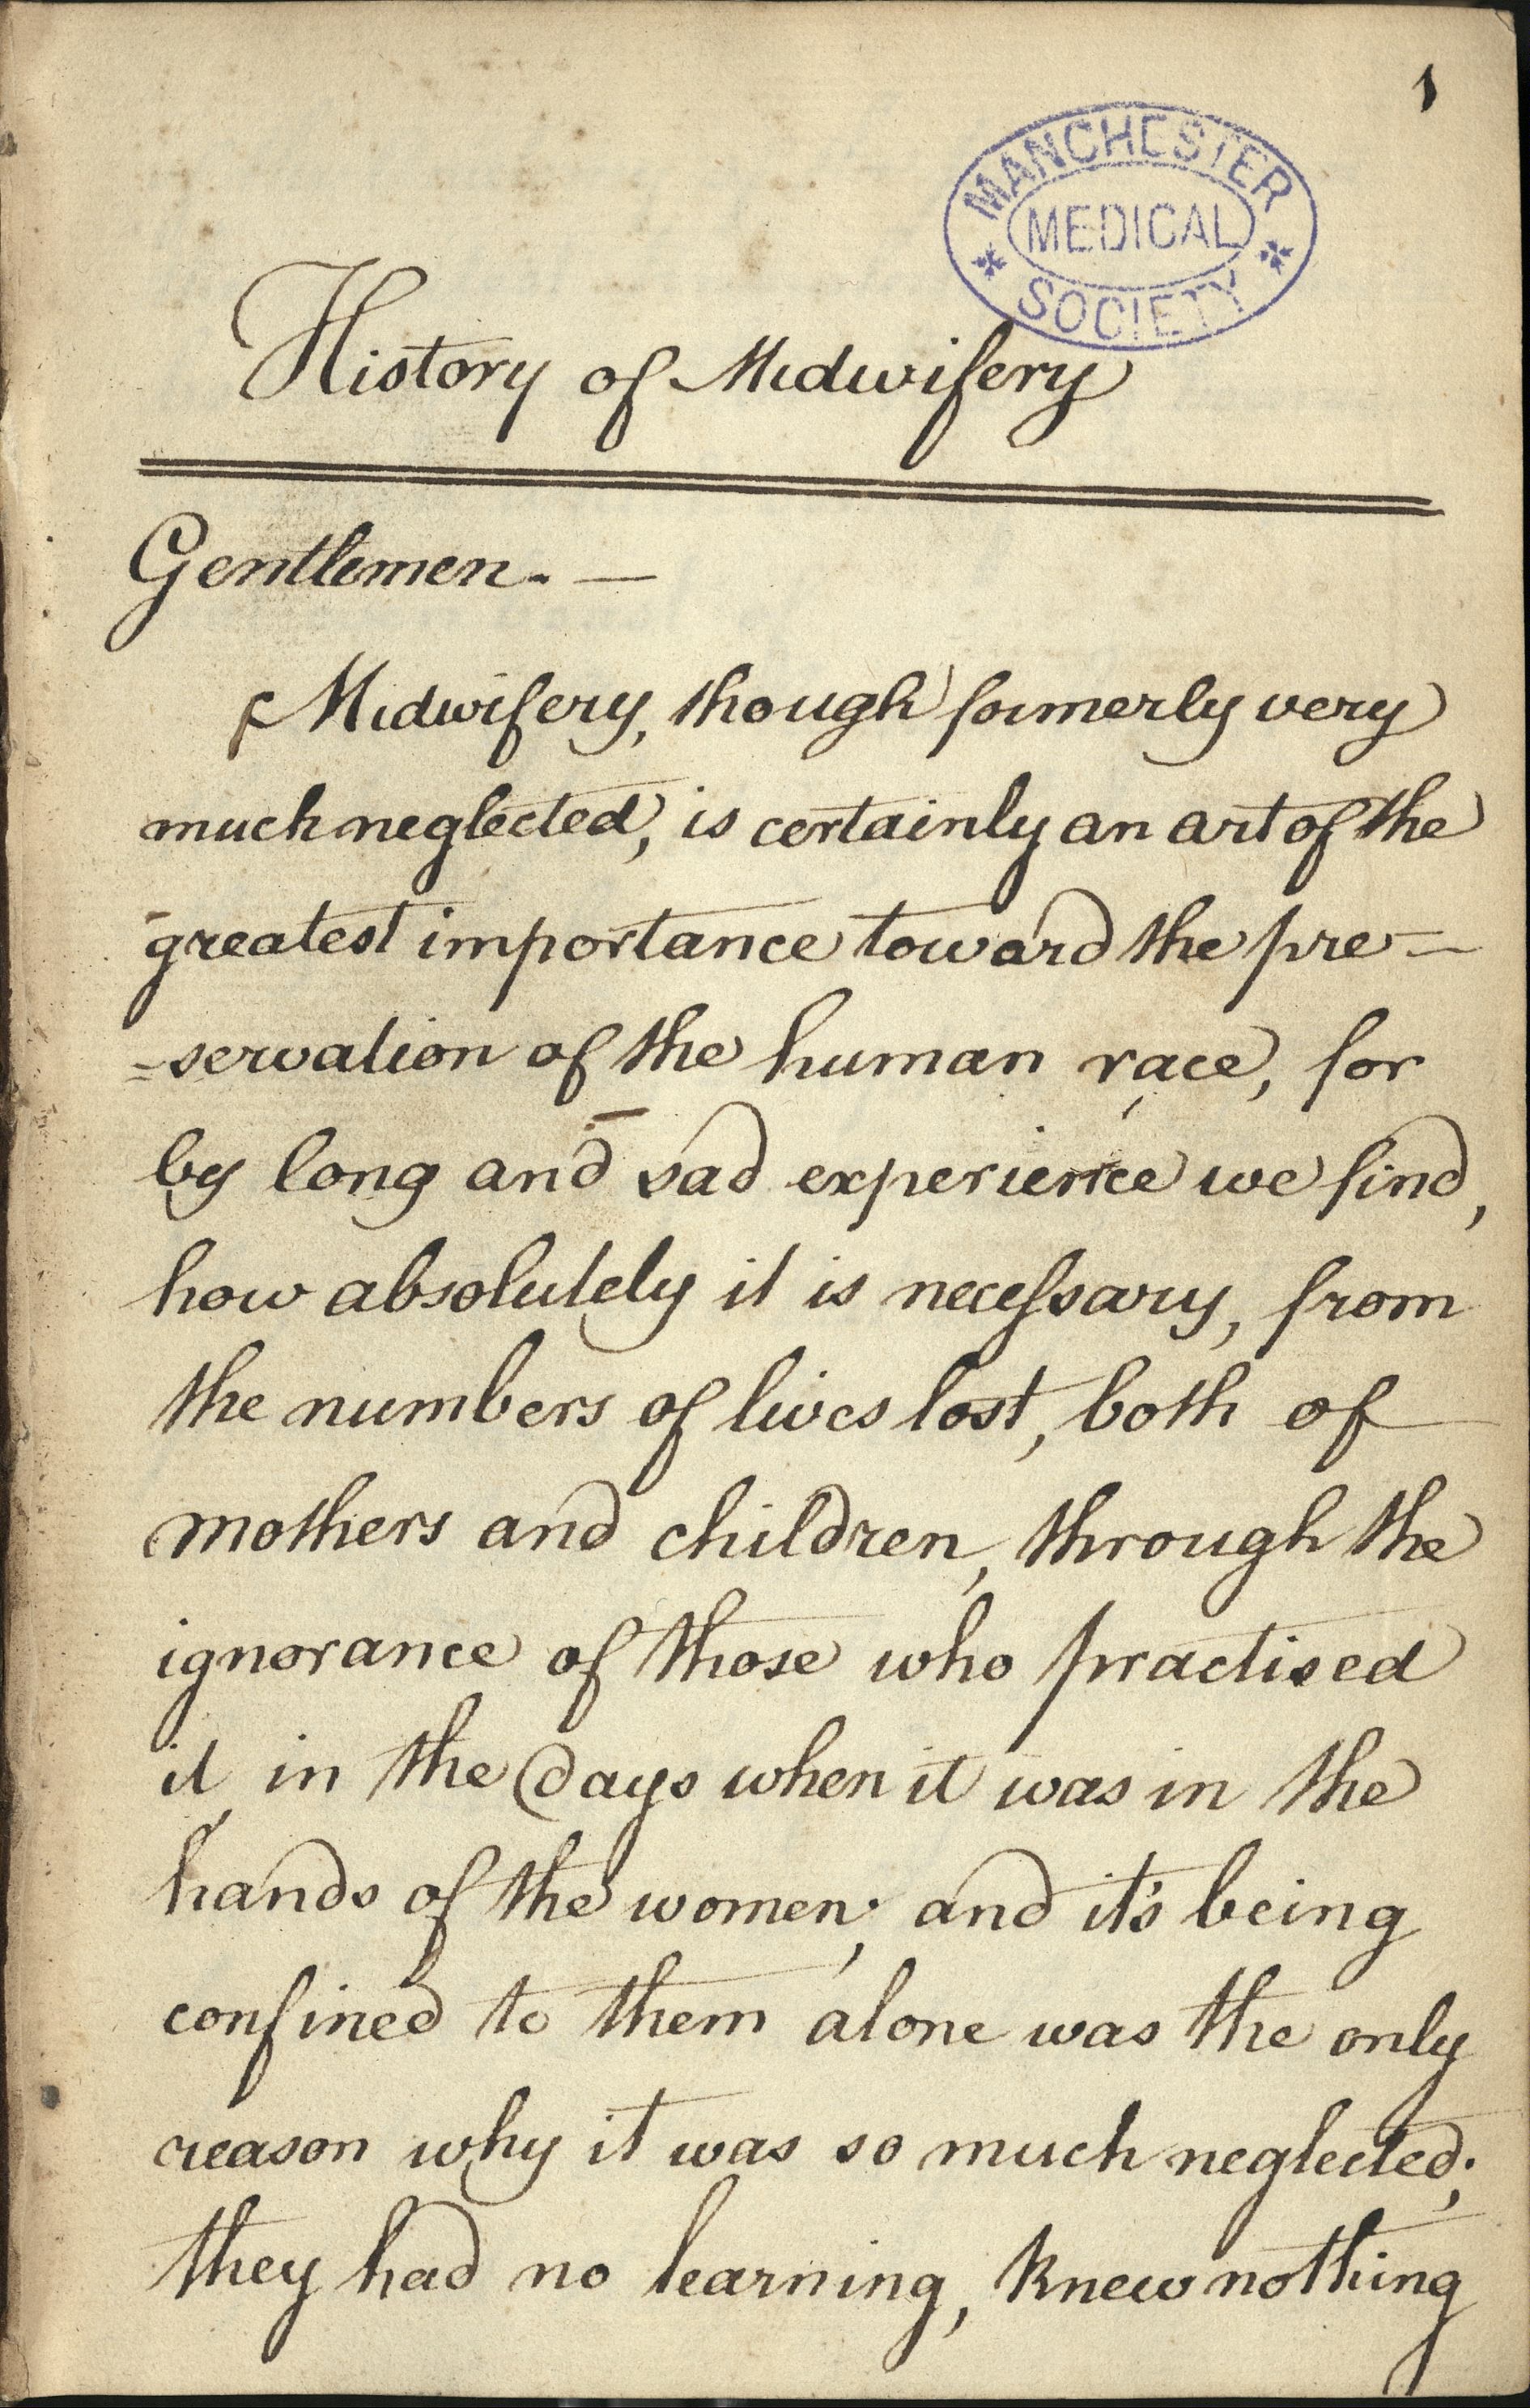 1
MANCHESTER
MEDICAL
SOCIETY
History of Midwifery
Gentlemen. —
Midwifery, though formerly very
much neglected, is certainly an art of the
greatest importance toward the pre=
=servation of the human race, for
by long and sad experience we find,
how absolutely it is necessary, from
the numbers of lives lost, both of
mothers and children, through the
ignorance of those who practised
it in the days when it was in the
hands of the women; and it's being
confined to them alone was the only
reason why it was so much neglected;
they had no learning, knew nothing